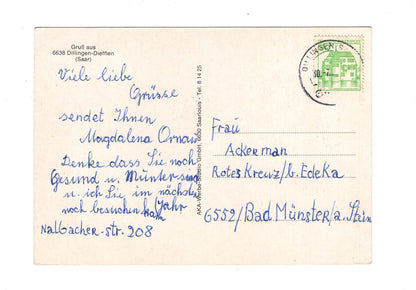 Gruß aus
6638 Dillingen-Diefflen
(Saar)
Viele liebe
Grüsse
sendet Ihnen
Magdalena Ornau
Denke dass Sie noch
Gesund u. Munter sind
u. ich Sie im nächsten
noch besuchen kann
(Jahr
Nalbacher-str. 208
AKA-Werbe-Studio GmbH, 6630 Saarlouis - Tel. 8 14 25
DILLINGEN
30.
Frau
Ackerman
Rotes Kreuz/b. Edeka
6552/Bad Münster/a. Stein